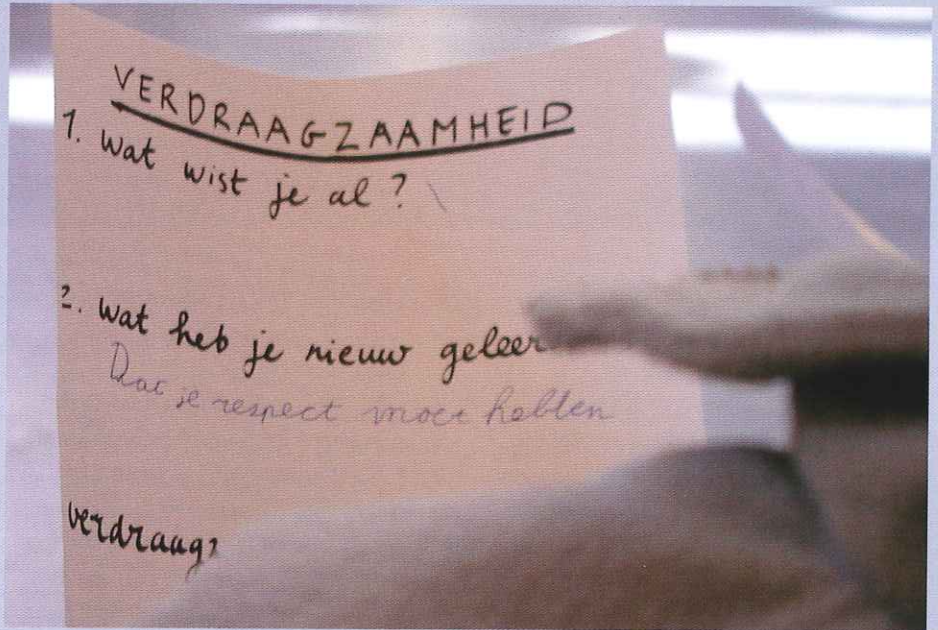 VERDRAAGZAAMHEID
1. Wat wist je al?
2. Wat heb je nieuw geleer
Dat je respect moet hebben
verdraag